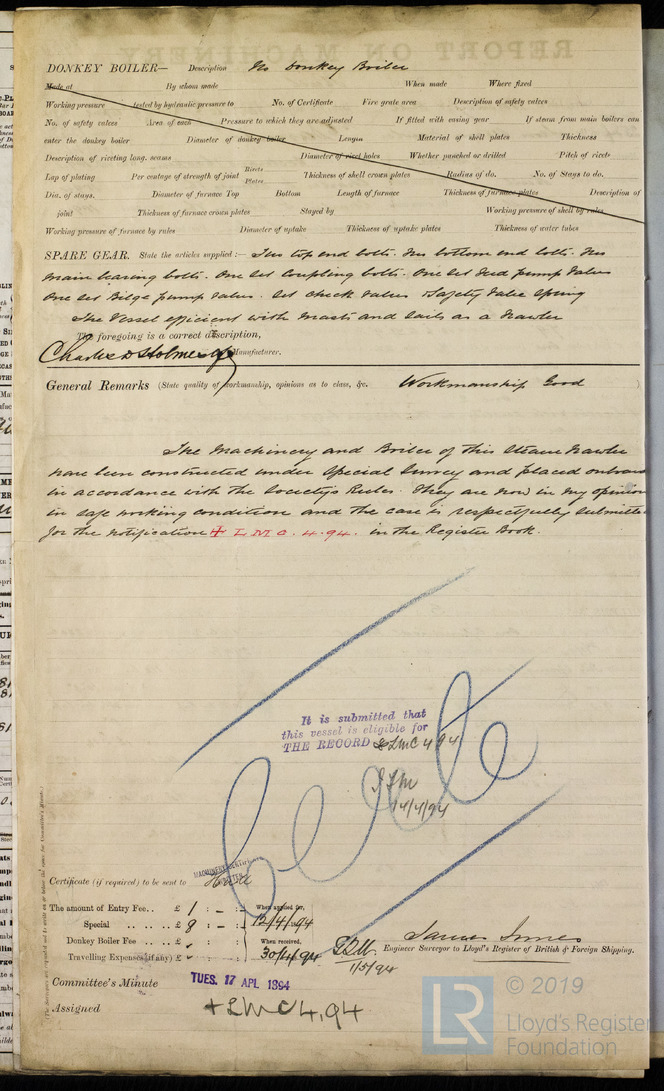 DONKEY BOILER— Description No Donkey Boiler
Made at By whom made When made Where fixed
Working pressure tested by hydraulic pressure to No. of Certificate Fire grate area Description of safety valves
No. of safety valves Area of each Pressure to which they are adjusted If fitted with easing gear If steam from main boilers can
enter the donkey boiler Diameter of donkey boiler Length Material of shell plates Thickness
Description of riveting long. seams Diameter of rivet holes Whether punched or drilled Pitch of rivets
Lap of plating Per centage of strength of joint Rivets Plates Thickness of shell crown plates Radius of do. No. of Stays to do.
Dia. of stays. Diameter of furnace Top Bottom Length of furnace Thickness of furnace plates Description of
joint Thickness of furnace crown plates Stayed by Working pressure of shell by rules
Working pressure of furnace by rules Diameter of uptake Thickness of uptake plates Thickness of water tubes
SPARE GEAR. State the articles supplied:— Two top end bolts. Two bottom end bolts. Two
main bearing bolts. One set Coupling bolts. One set Feed pump valves
One set Bilge pump valves. Set check valves Safety valve spring
The Vessel efficient with masts and sails as a Trawler
The foregoing is a correct description,
Charles D Holmes & Co Manufacturer.
General Remarks (State quality of workmanship, opinions as to class, &c. Workmanship Good
The Machinery and Boiler of this Steam Trawler
have been constructed under Special Survey and placed onboard
in accordance with the Society's Rules. They are now in my opinion
in safe working condition and the case is respectfully submitted
for the notification ✠ L M C. 4.94. in the Register Book.
It is submitted that
this vessel is eligible for
THE RECORD + LMC 4 94
14/4/94
Certificate (if required) to be sent to Hull
The amount of Entry Fee.. £ 1 : - : When applied for,
Special .. .. .. £ 8 : - : 12/4/94
Donkey Boiler Fee .. .. £ When received,
Travelling Expenses (if any) £ 30/4/94
1/5/94
James Innes
Engineer Surveyor to Lloyd's Register of British & Foreign Shipping.
Committee's Minute TUES. 17 APL 1894
Assigned + LMC 4.94
© 2019
LR
Lloyd's Register
Foundation